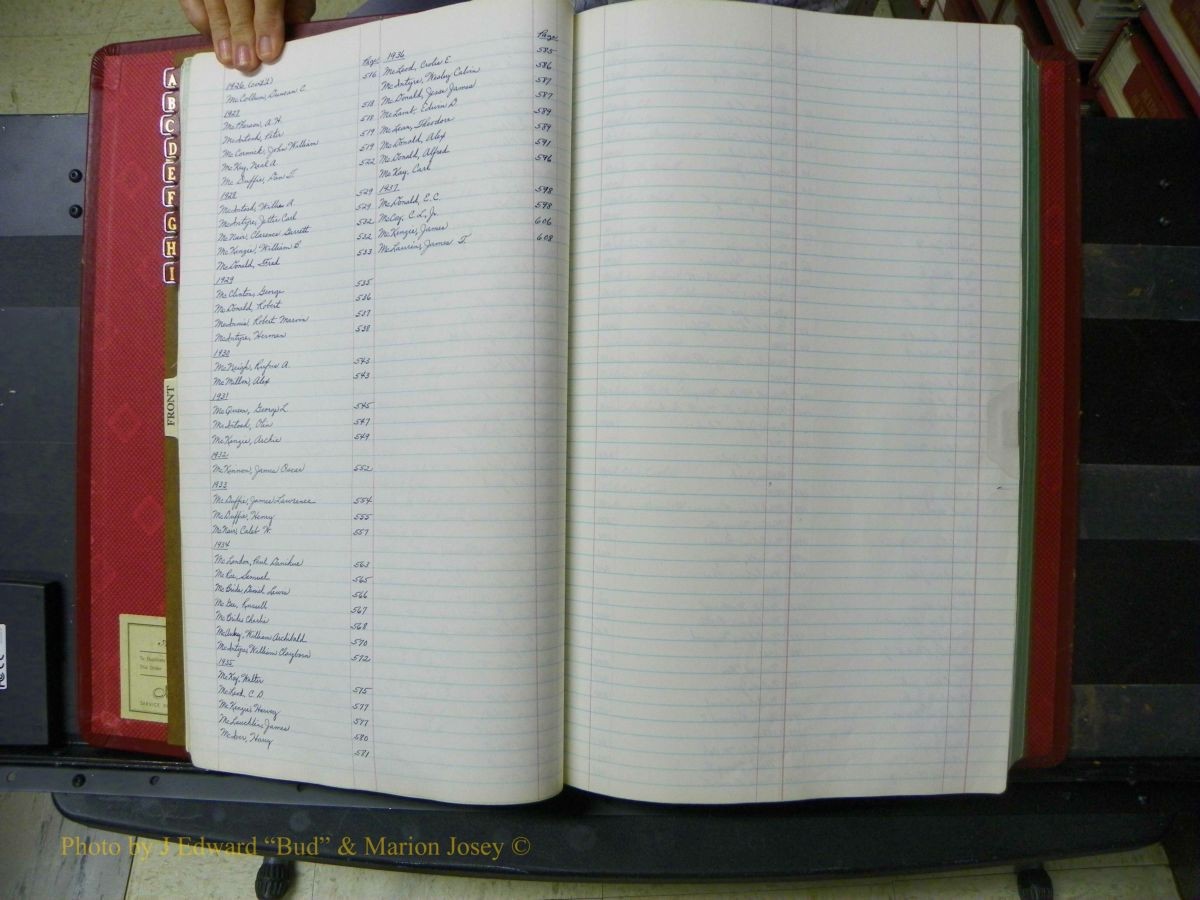 1926 (cont'd)
McCollum, Duncan C. 516
1927
McPherson, A. H. 518
McIntosh, Peter 518
McCormick, John William 519
McKay, Neal A. 519
McDuffie, Dan T. 522
1928
McIntosh, Willie A. 529
McIntyre, Jettie Carl 529
McNair, Clarence Garrett 532
McKenzie, William B. 532
McDonald, Fred 533
1929
McClinton, George 535
McDonald, Robert 536
McInnis, Robert Marvin 537
McIntyre, Herman 538
1930
McNeigh, Rufus A. 543
McMillon, Alex 543
1931
McQueen, George L. 545
McIntosh, Olin 547
McKenzie, Archie 549
1932
McKinnon, James Oscar 552
1933
McDuffie, James Lawrence 554
McDuffie, Henry 555
McNair, Caleb W. 557
1934
McLendon, Paul 563
McRae, Samuel 565
McBride, Daniel Lewis 566
McGee, Russell 567
McBride, Charlie 568
William Archibald 570
McIntyre, William Clayborn 572
1935
McKay, Walter 575
McLeod, C. D. 577
McKenzie, Harvey 577
McLaughlin, James 580
McIver, Harry 581
Page
1936 Page
McLeod, E. 585
McIntyre, Wesley Calvin 586
McDonald, Jesse James 587
McLamb, Edwin D. 587
McLean, Theodore 589
McDonald, Alex 589
McDonald, Alfred 591
McKay, Carl 596
1937
McDonald, E. C. 598
McCoy, C. L., Jr. 598
McKenzie, James 606
McLaurin, James T. 608
A
B
C
D
E
F
G
H
I
FRONT
SERVICE
Photo by J Edward “Bud” & Marion Josey ©